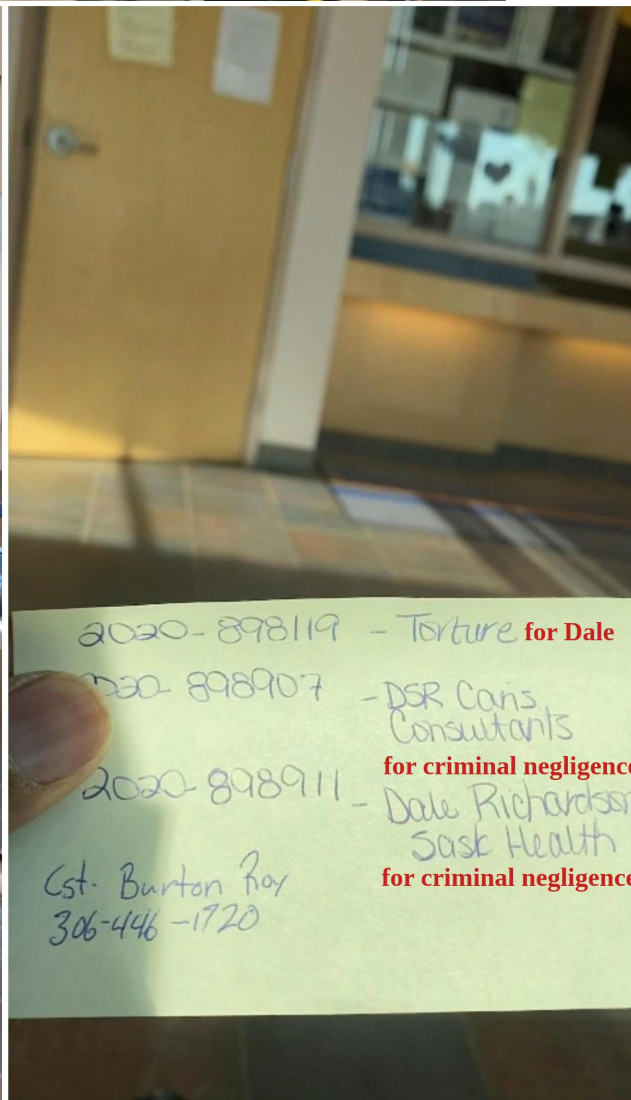 2020-898119 - Torture for Dale
020- 898907 - DSR Caris
Consultants
for criminal negligence
2020-898911 - Dale Richardson
Sask Health
for criminal negligence
Cst. Burton Roy
306-446-1720